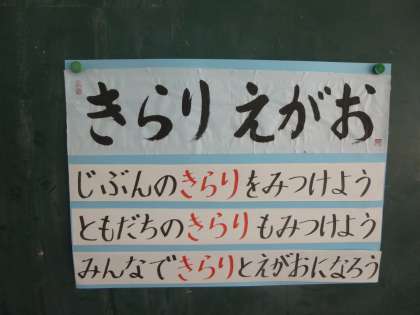 きらりえがお
じぶんのきらりをみつけよう
ともだちのきらりもみつけよう
みんなできらりとえがおになろう